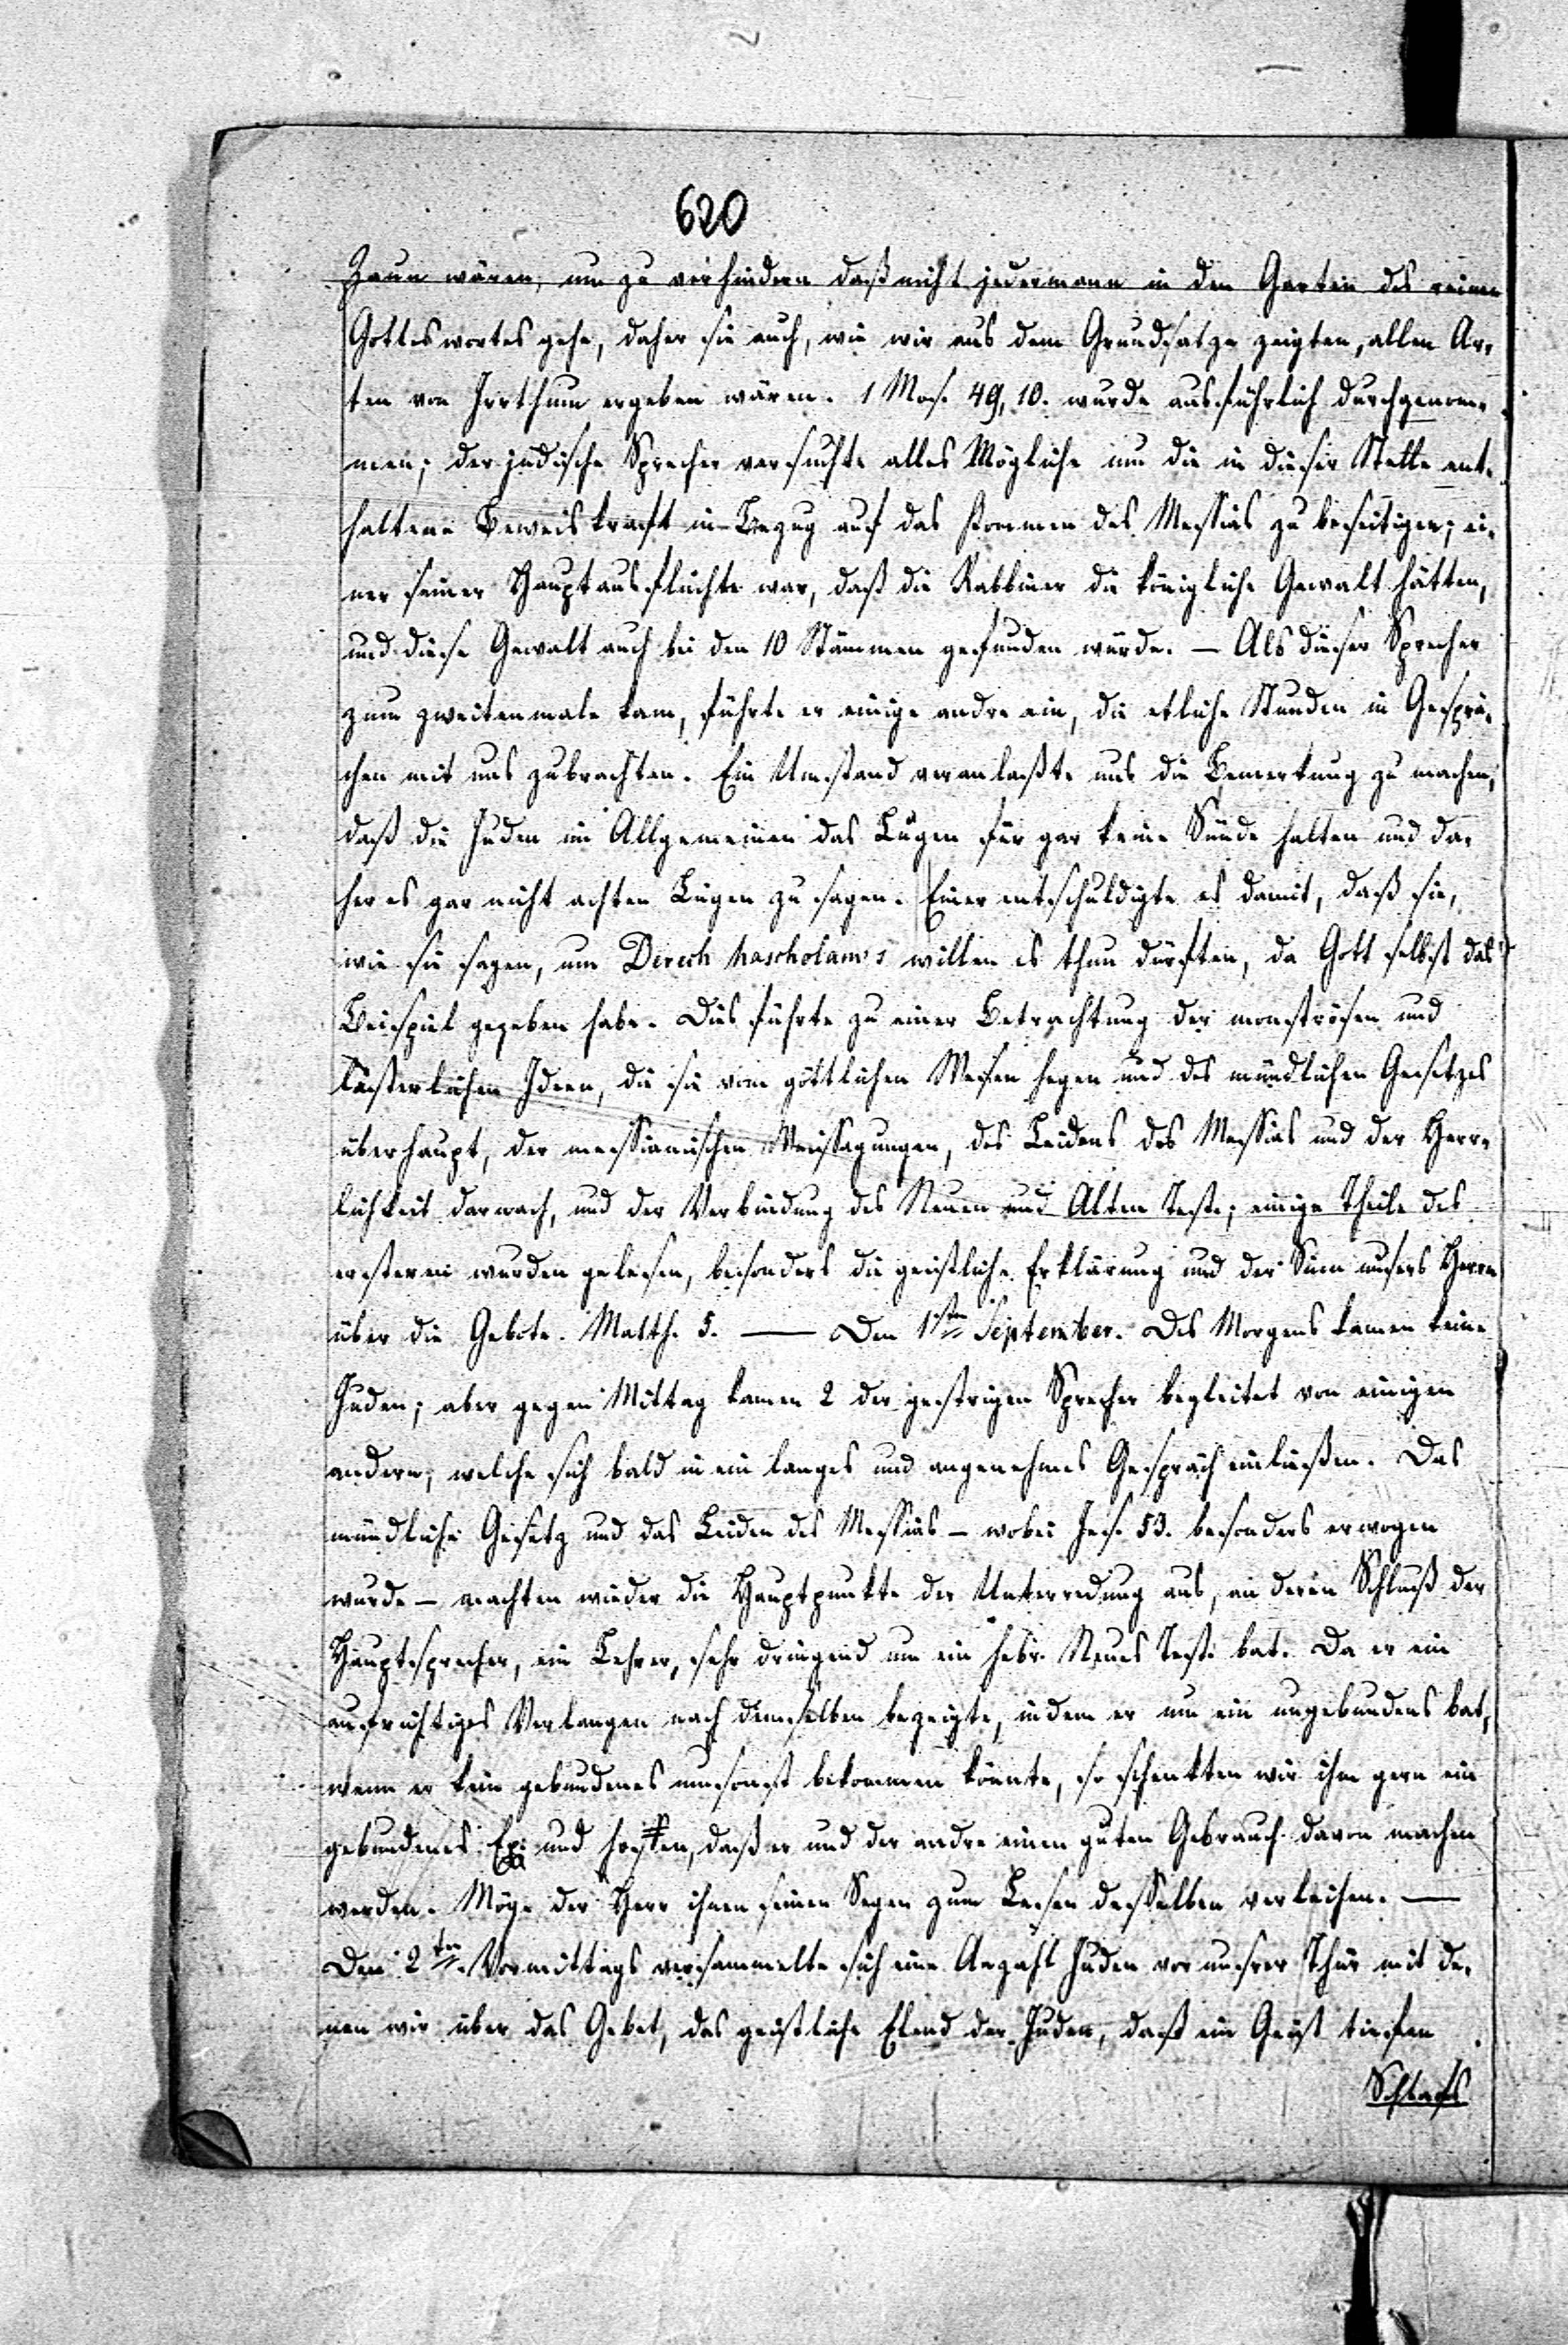 620
Zaun wären, um zu verhindern daß nicht jedermann in den Garten des reinen
Gotteswortes gehe, daher sie auch, wie wir aus dem Grundsatze zeigten, allen Ar-
ten von Irrthum ergeben wären. 1 Mos. 49, 10. wurde ausführlich durchgenom-
men; der jüdische Sprecher versuchte alles Mögliche um die in dieser Stelle ent-
haltene Beweiskraft in Bezug auf das Kommen des Messias zu beseitigen; ei-
ner seiner Hauptausflüchte war, daß die Rabbiner die königliche Gewalt hätten,
und diese Gewalt auch bei den 10 Stämmen gefunden würde. — Als dieser Sprecher
zum zweitenmale kam, führte er einige andre ein, die etliche Stunden in Gesprä-
chen mit uns zubrachten. Ein Umstand veranlaßte uns die Bemerkung zu machen,
daß die Juden im Allgemeinen das Lügen für gar keine Sünde halten und da-
her es gar nicht achten Lügen zu sagen. Einer entschuldigte es damit, daß sie,
wie sie sagen, um Derech hascholam's willen es thun dürften, da Gott selbst das
Beispiel gegeben habe. Dies führte zu einer Betrachtung der monströsen und
lästerlichen Ideen, die sie vom göttlichen Wesen hegen und des mündlichen Gesetzes
überhaupt, der messianischen Weissagungen, des Leidens des Messias und der Herr-
lichkeit darnach, und der Verbindung des Neuen und Alten Test.; einige Theile des
ersteren wurden gelesen, besonders die geistliche Erklärung und der Sinn unsers Herrn
über die Gebote. Matth. 5. — Den 1sten September. Des Morgens kamen keine
Juden; aber gegen Mittag kamen 2 der gestrigen Sprecher begleitet von einigen
andern, welche sich bald in ein langes und angenehmes Gespräch einließen. Das
mündliche Gesetz und das Leiden des Messias — wobei Jes. 53. besonders erwogen
wurde — machten wieder die Hauptpunkte der Unterredung aus, an deren Schluß der
Hauptsprecher, ein Lehrer, sehr dringend um ein hebr. Neues Test. bat. Da er ein
aufrichtiges Verlangen nach demselben bezeigte, indem er um ein ungebundens bat,
wenn er kein gebundenes umsonst bekommen könnte, so schenkten wir ihm gern ein
gebundenes Ex. und hofften, daß er und der andre einen guten Gebrauch davon machen
werden. Möge der Herr ihnen seinen Segen zum Lesen desselben verleihen. —
Den 2ten. Vormittags versammelte sich eine Anzahl Juden vor unsrer Thür mit de-
nen wir über das Gebet, das geistliche Elend der Juden, daß ein Geist tiefen
Schlafs